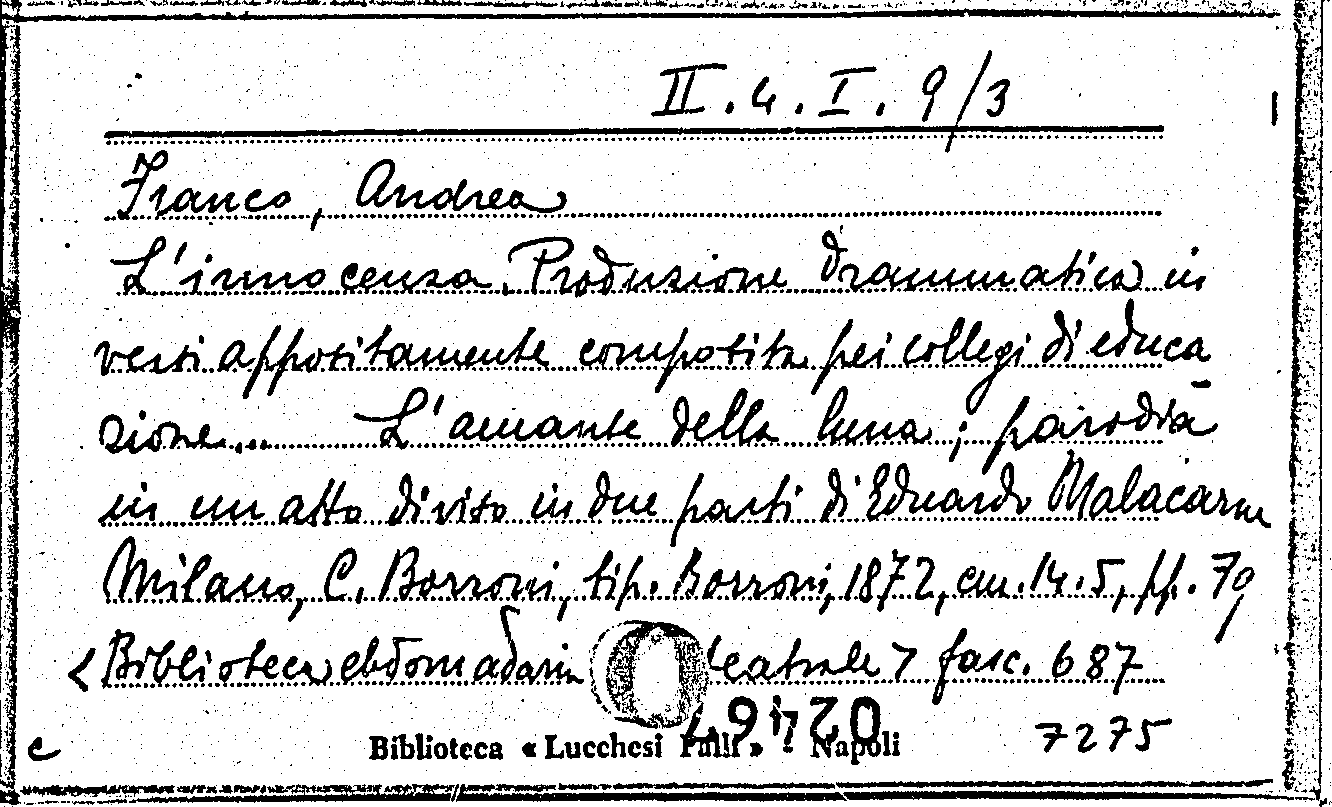 II.4.I.9/3
Franco, Andrea
L'innocenza. Produzione drammatica in
versi appositamente composita pei collegi di educa
zione... L'amante della luna; parodia
in un atto diviso in due parti di Eduardo Malacarne
Milano, C. Borroni, tip. Borroni, 1872, cm. 14.5, pp. 79
<Biblioteca ebdomadaria teatrale> fasc. 687
7275
c Biblioteca « Lucchesi Palli » - Napoli